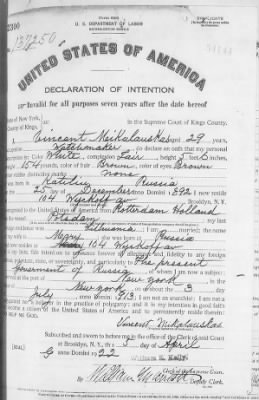 U. S. DEPARTMENT OF LABOR
NATURALIZATION SERVICE
137250
UNITED STATES OF AMERICA
DECLARATION OF INTENTION
Invalid for all purposes seven years after the date hereof
State of New York,
County of Kings,
In the Supreme Court of Kings County.
Vincent Meikalauskas aged 29 years,
occupation Watchmaker do declare on oath that my personal
description is: Color White, complexion Fair, height 5 feet 6 inches,
weight 154 pounds, color of hair Brown, color of eyes Brown
other visible distinctive marks none
I was born in Russia
on the 25 day of December Anno Domini 1892; I now reside
at 104 Wyckoff av Brooklyn, N. Y.
I emigrated to the United States of America from Rotterdam Holland
on the vessel my last
foreign residence was Lithuania; I am married; the name
of my wife is Mary she was born at Russia
and now resides at 104 Wyckoff av
It is my bona fide intention to renounce forever all allegiance and fidelity to any foreign
prince, potentate, state, or sovereignty, and particularly to The present
Government of Russia, of whom I am now a subject;
I arrived at the port of New York, in the
State of New York, on or about the 3 day
of July Anno Domini 1913; I am not an anarchist; I am not a
polygamist nor a believer in the practice of polygamy; and it is my intention in good faith
to become a citizen of the United States of America and to permanently reside therein:
SO HELP ME GOD.
Vincent Meikalauskas
Subscribed and sworn to before me in the office of the Clerk of said Court at
Brooklyn, N. Y., this 5 day of April
[SEAL]
Anno Domini 1922
William E. Kelly
Clerk of the Supreme Court.
By Deputy Clerk.